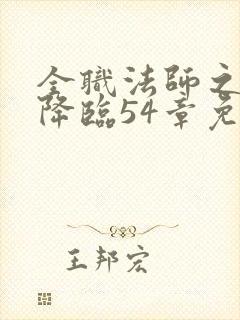 全職法師之
降臨54章免
王邦宏